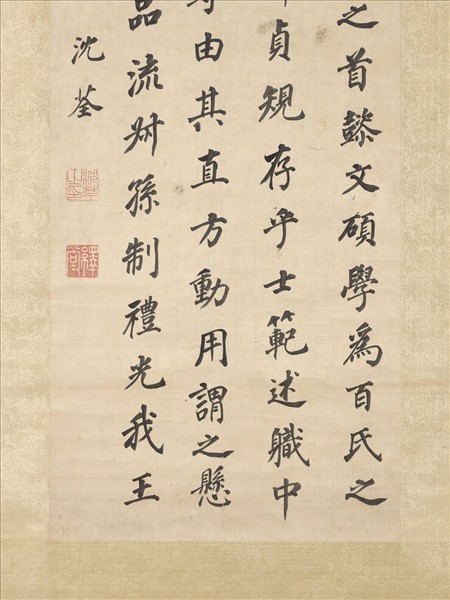 之首懿文碩學爲百氏之
貞規存乎士範述職中
由其直方動用謂之懸
品流叔孫制禮光我王
沈荃
沈荃之印
繹堂